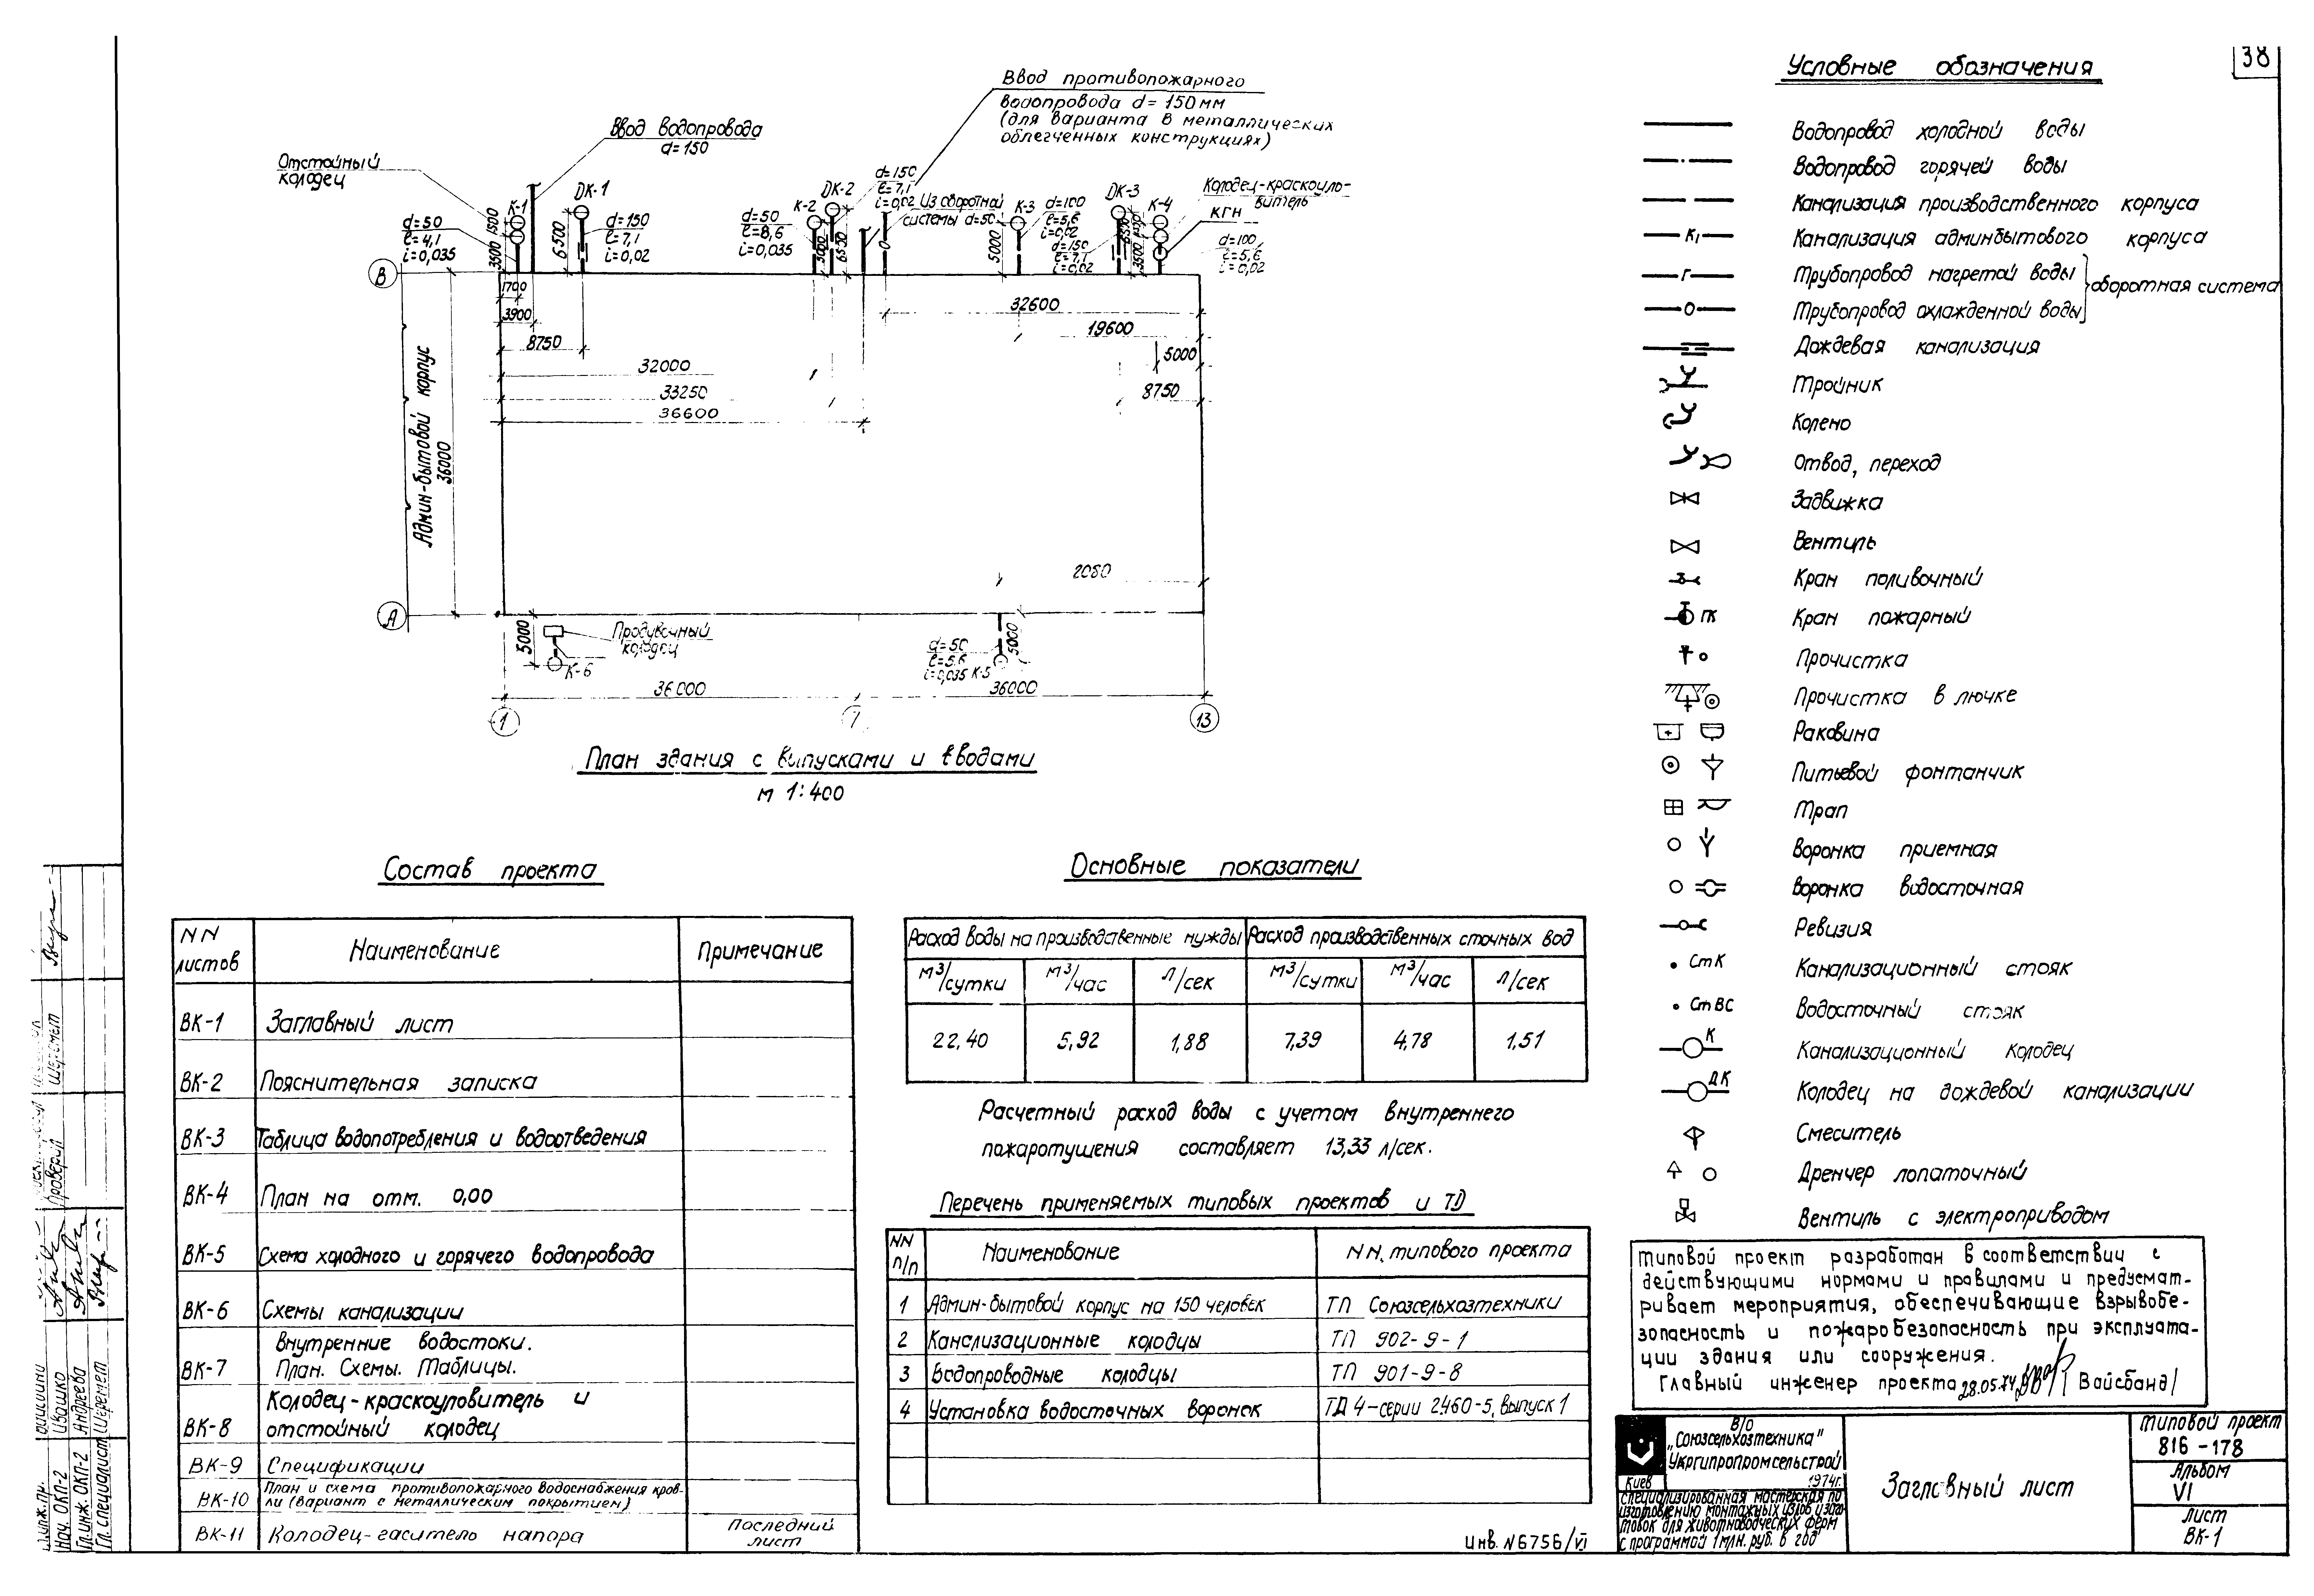 38
Условные обозначения
Водопровод холодной воды
Водопровод горячей воды
Канализация производственного корпуса
К1 Канализация админбытового корпуса
Г Трубопровод нагретой воды
О Трубопровод охлажденной воды
оборотная система
Дождевая канализация
Тройник
Колено
Отвод, переход
Задвижка
Вентиль
Кран поливочный
ПК Кран пожарный
Прочистка
Прочистка в лючке
Раковина
Питьевой фонтанчик
Трап
Воронка приемная
Воронка водосточная
Ревизия
СтК Канализационный стояк
СтВС Водосточный стояк
К Канализационный колодец
ДК Колодец на дождевой канализации
Смеситель
Дренчер лопаточный
Вентиль с электроприводом
Ввод противопожарного
водопровода d=150мм
(для варианта в металлических
облегченных конструкциях)
Ввод водопровода
d=150
Отстойный
колодец
К-1
ДК-1
d=50
ℓ=4,1
i=0,035
3500 1500
6500
d=150
ℓ=7,1
i=0,02
К-2
ДК-2
d=50
ℓ=8,6
i=0,035
5000
6500
d=150
ℓ=7,1
i=0,02
Из оборотной
системы d=50
К-3
5000
d=100
ℓ=5,6
i=0,02
d=150
ℓ=7,1
i=0,02
ДК-3
К-4
3500
Колодец-краскоуло-
витель
КГН
d=100
ℓ=5,6
i=0,02
В
1700
3900
8750
32000
33250
36600
32600
19600
5000
8750
Админ-бытовой корпус
36000
А
5000
Продувочный
колодец
К-6
d=50
ℓ=5,6
i=0,035 К-5
5000
36000
36000
1
7
13
План здания с выпусками и вводами
м 1:400
Состав проекта
NN
листов
Наименование
Примечание
ВК-1 Заглавный лист
ВК-2 Пояснительная записка
ВК-3 Таблица водопотребления и водоотведения
ВК-4 План на отм. 0,00
ВК-5 Схема холодного и горячего водопровода
ВК-6 Схемы канализации
Внутренние водостоки.
ВК-7 План. Схемы. Таблицы.
Колодец-краскоуловитель и
ВК-8 отстойный колодец
ВК-9 Спецификации
План и схема противопожарного водоснабжения кров-
ВК-10 ли (вариант с металлическим покрытием)
ВК-11 Колодец-гаситель напора
Последний
лист
Основные показатели
Расход воды на производственные нужды
Расход производственных сточных вод
м³/сутки м³/час л/сек м³/сутки м³/час л/сек
22,40 5,92 1,88 7,39 4,78 1,51
Расчетный расход воды с учетом внутреннего
пожаротушения составляет 13,33 л/сек.
Перечень применяемых типовых проектов и ТД
NN
п/п
Наименование
NN. типового проекта
1 Админ-бытовой корпус на 150 человек ТП Союзсельхозтехники
2 Канализационные колодцы ТП 902-9-1
3 Водопроводные колодцы ТП 901-9-8
4 Установка водосточных воронок ТД 4-серии 2.460-5, выпуск 1
Типовой проект разработан в соответствии с
действующими нормами и правилами и предусмат-
ривает мероприятия, обеспечивающие взрывобе-
зопасность и пожаробезопасность при эксплуата-
ции здания или сооружения.
Главный инженер проекта 28.05.74 /Вайсбанд/
В/О
„Союзсельхозтехника"
Укргипропромсельстрой
Киев 1974г.
Специализированная мастерская по
изготовлению монтажных узлов и заго-
товок для животноводческих ферм
с программой 1 млн. руб. в год
Заглавный лист
Типовой проект
816-178
Альбом
VI
Лист
ВК-1
Инв. N6756/VI
Нач. ОКП-2 Ивашко
Гл.инж. ОКП-2 Андреева
Гл. специалист Шеремет
Проверил Шеремет